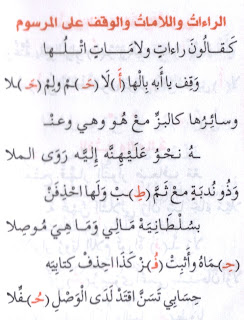 الراءاتُ واللاماتُ والوقفُ على المرسوم
كَقَالُونَ رَاءَاتٍ وَلَامَـاتٍ اتْـلُـها
وَقِف يا أَبه بِالْها (أَ)لَا (حَـ)مْ وَلِمْ (حَـ)ـلا
وسائِرُها كالبزِّ معْ هُو وهي وعنـْ
ـهُ نحوُ عَلَيْهِنَّهْ إليَّهْ رَوَى الملا
وَذُو نُدْبَةٍ معْ ثَمَّ (طِـ)بْ وَلِهَا احْذِفَنْ
بِسُلْطَانِيَهْ مَالِي وَمَا هِيَ مُوصِلا
(حِـ)مَاهُ وأَثْبِتْ (فُـ)زْ كَذَا احذِفْ كِتابِيَه
حِسَابي تَسَنَّ اقتَدْ لَدَى الْوَصْلِ (حُـ)ـفِّلا